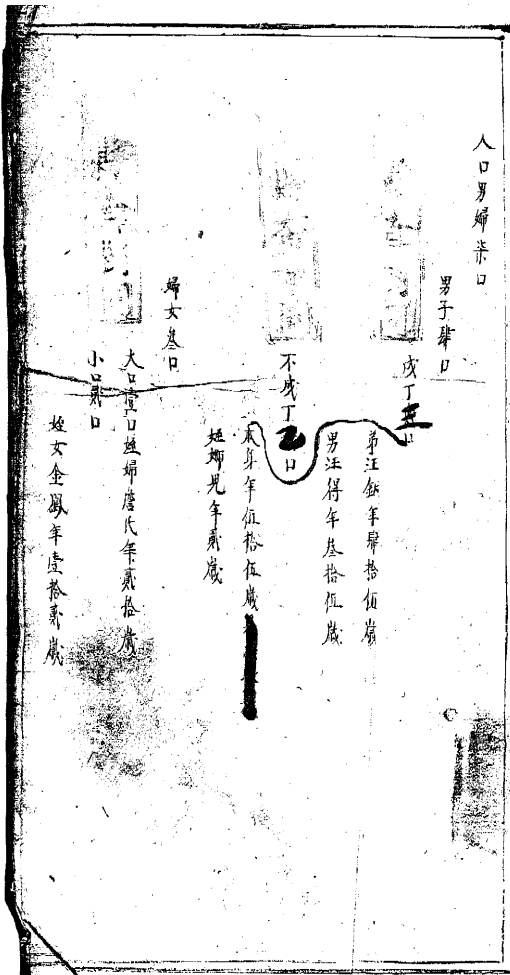 人口男婦柒口
男子肆口
成丁三口
弟汪 年肆拾伍歲
男汪得年叁拾伍歲
不成丁乙口
本身年伍拾伍歲
姪 兒年貳歲
婦女叁口
大口壹口姪婦詹氏年貳拾歲
小口貳口
姪女金鳳年壹拾貳歲